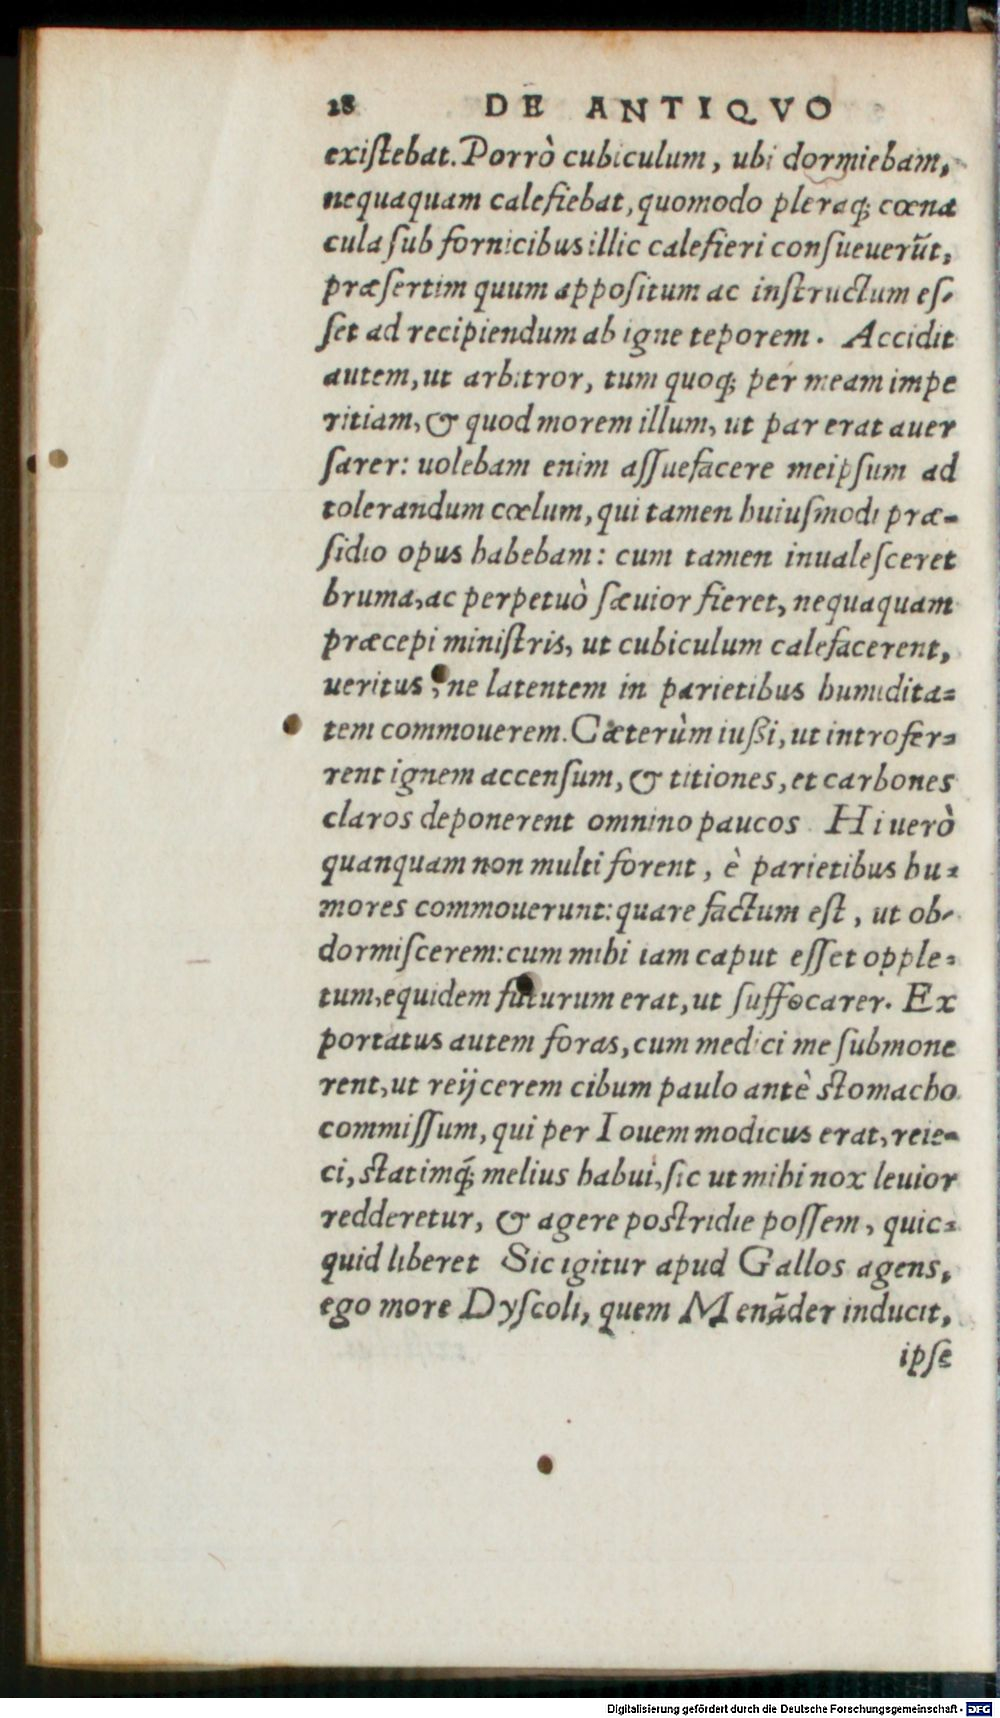 18 DE ANTIQVO
existebat. Porrò cubiculum, ubi dormiebam,
nequaquam calefiebat, quomodo pleraq; cœna
cula sub fornicibus illic calefieri consueuerūt,
præsertim quum appositum ac instructum es-
set ad recipiendum ab igne teporem. Accidit
autem, ut arbitror, tum quoq; per meam impe
ritiam, & quod morem illum, ut par erat auer
sarer: uolebam enim assuefacere meipsum ad
tolerandum cœlum, qui tamen huiusmodi præ-
sidio opus habebam: cum tamen inualesceret
bruma, ac perpetuò sæuior fieret, nequaquam
præcepi ministris, ut cubiculum calefacerent,
ueritus, ne latentem in parietibus humidita-
tem commouerem. Cæterùm iußi, ut introfer-
rent ignem accensum, & titiones, et carbones
claros deponerent omnino paucos. Hi uerò
quanquam non multi forent, è parietibus hu-
mores commouerunt: quare factum est, ut ob-
dormiscerem: cum mihi iam caput esset opple-
tum, equidem futurum erat, ut suffocarer. Ex
portatus autem foras, cum medici me submone
rent, ut reijcerem cibum paulo antè stomacho
commissum, qui per Iouem modicus erat, reie-
ci, statimq́; melius habui, sic ut mihi nox leuior
redderetur, & agere postridie possem, quic-
quid liberet Sic igitur apud Gallos agens,
ego more Dyscoli, quem Menāder inducit,
ipse
Digitalisierung gefördert durch die Deutsche Forschungsgemeinschaft - DFG